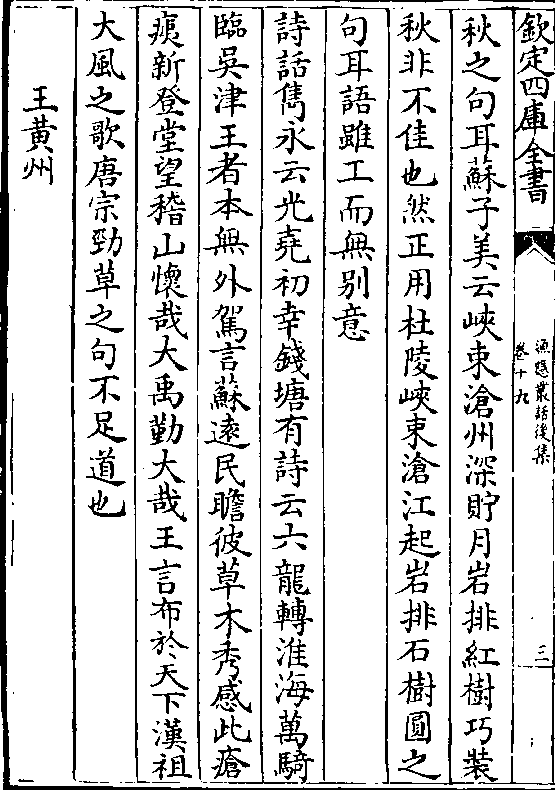 欽定四庫全書
漁隱叢話後集
卷十九
三
秋之句耳蘇子美云峽束滄州深貯月岩排紅樹巧装
秋非不佳也然正用杜陵峽束滄江起岩排石樹圓之
句耳語雖工而無别意
詩話雋永云光堯初幸錢塘有詩云六龍轉淮海萬騎
臨吳津王者本無外駕言蘇逺民瞻彼草木秀感此瘡
痍新登堂望稽山懷哉大禹勤大哉王言布於天下漢祖
大風之歌唐宗勁草之句不足道也
王黄州